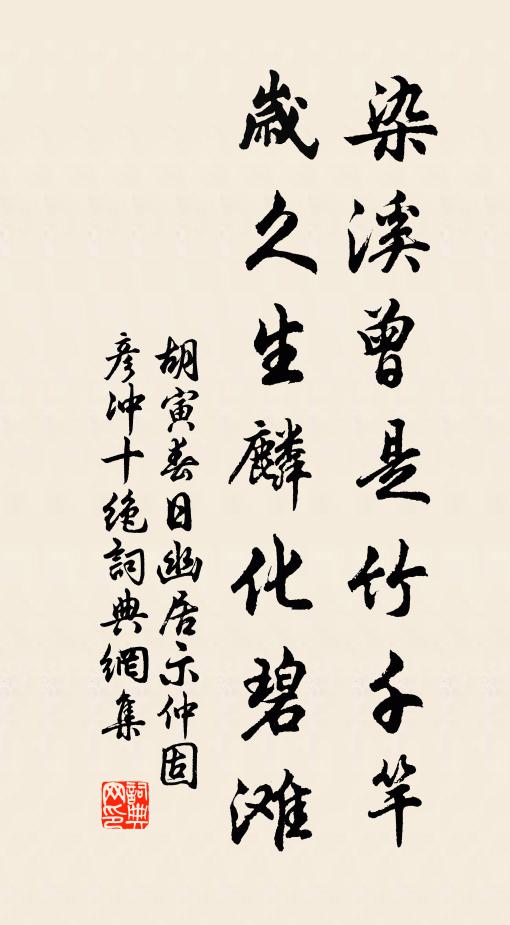 染溪曾是竹千竿
歲久生麟化碧滩
胡寅春日幽居示仲固
彥冲十绝詞典網集
詞典网印